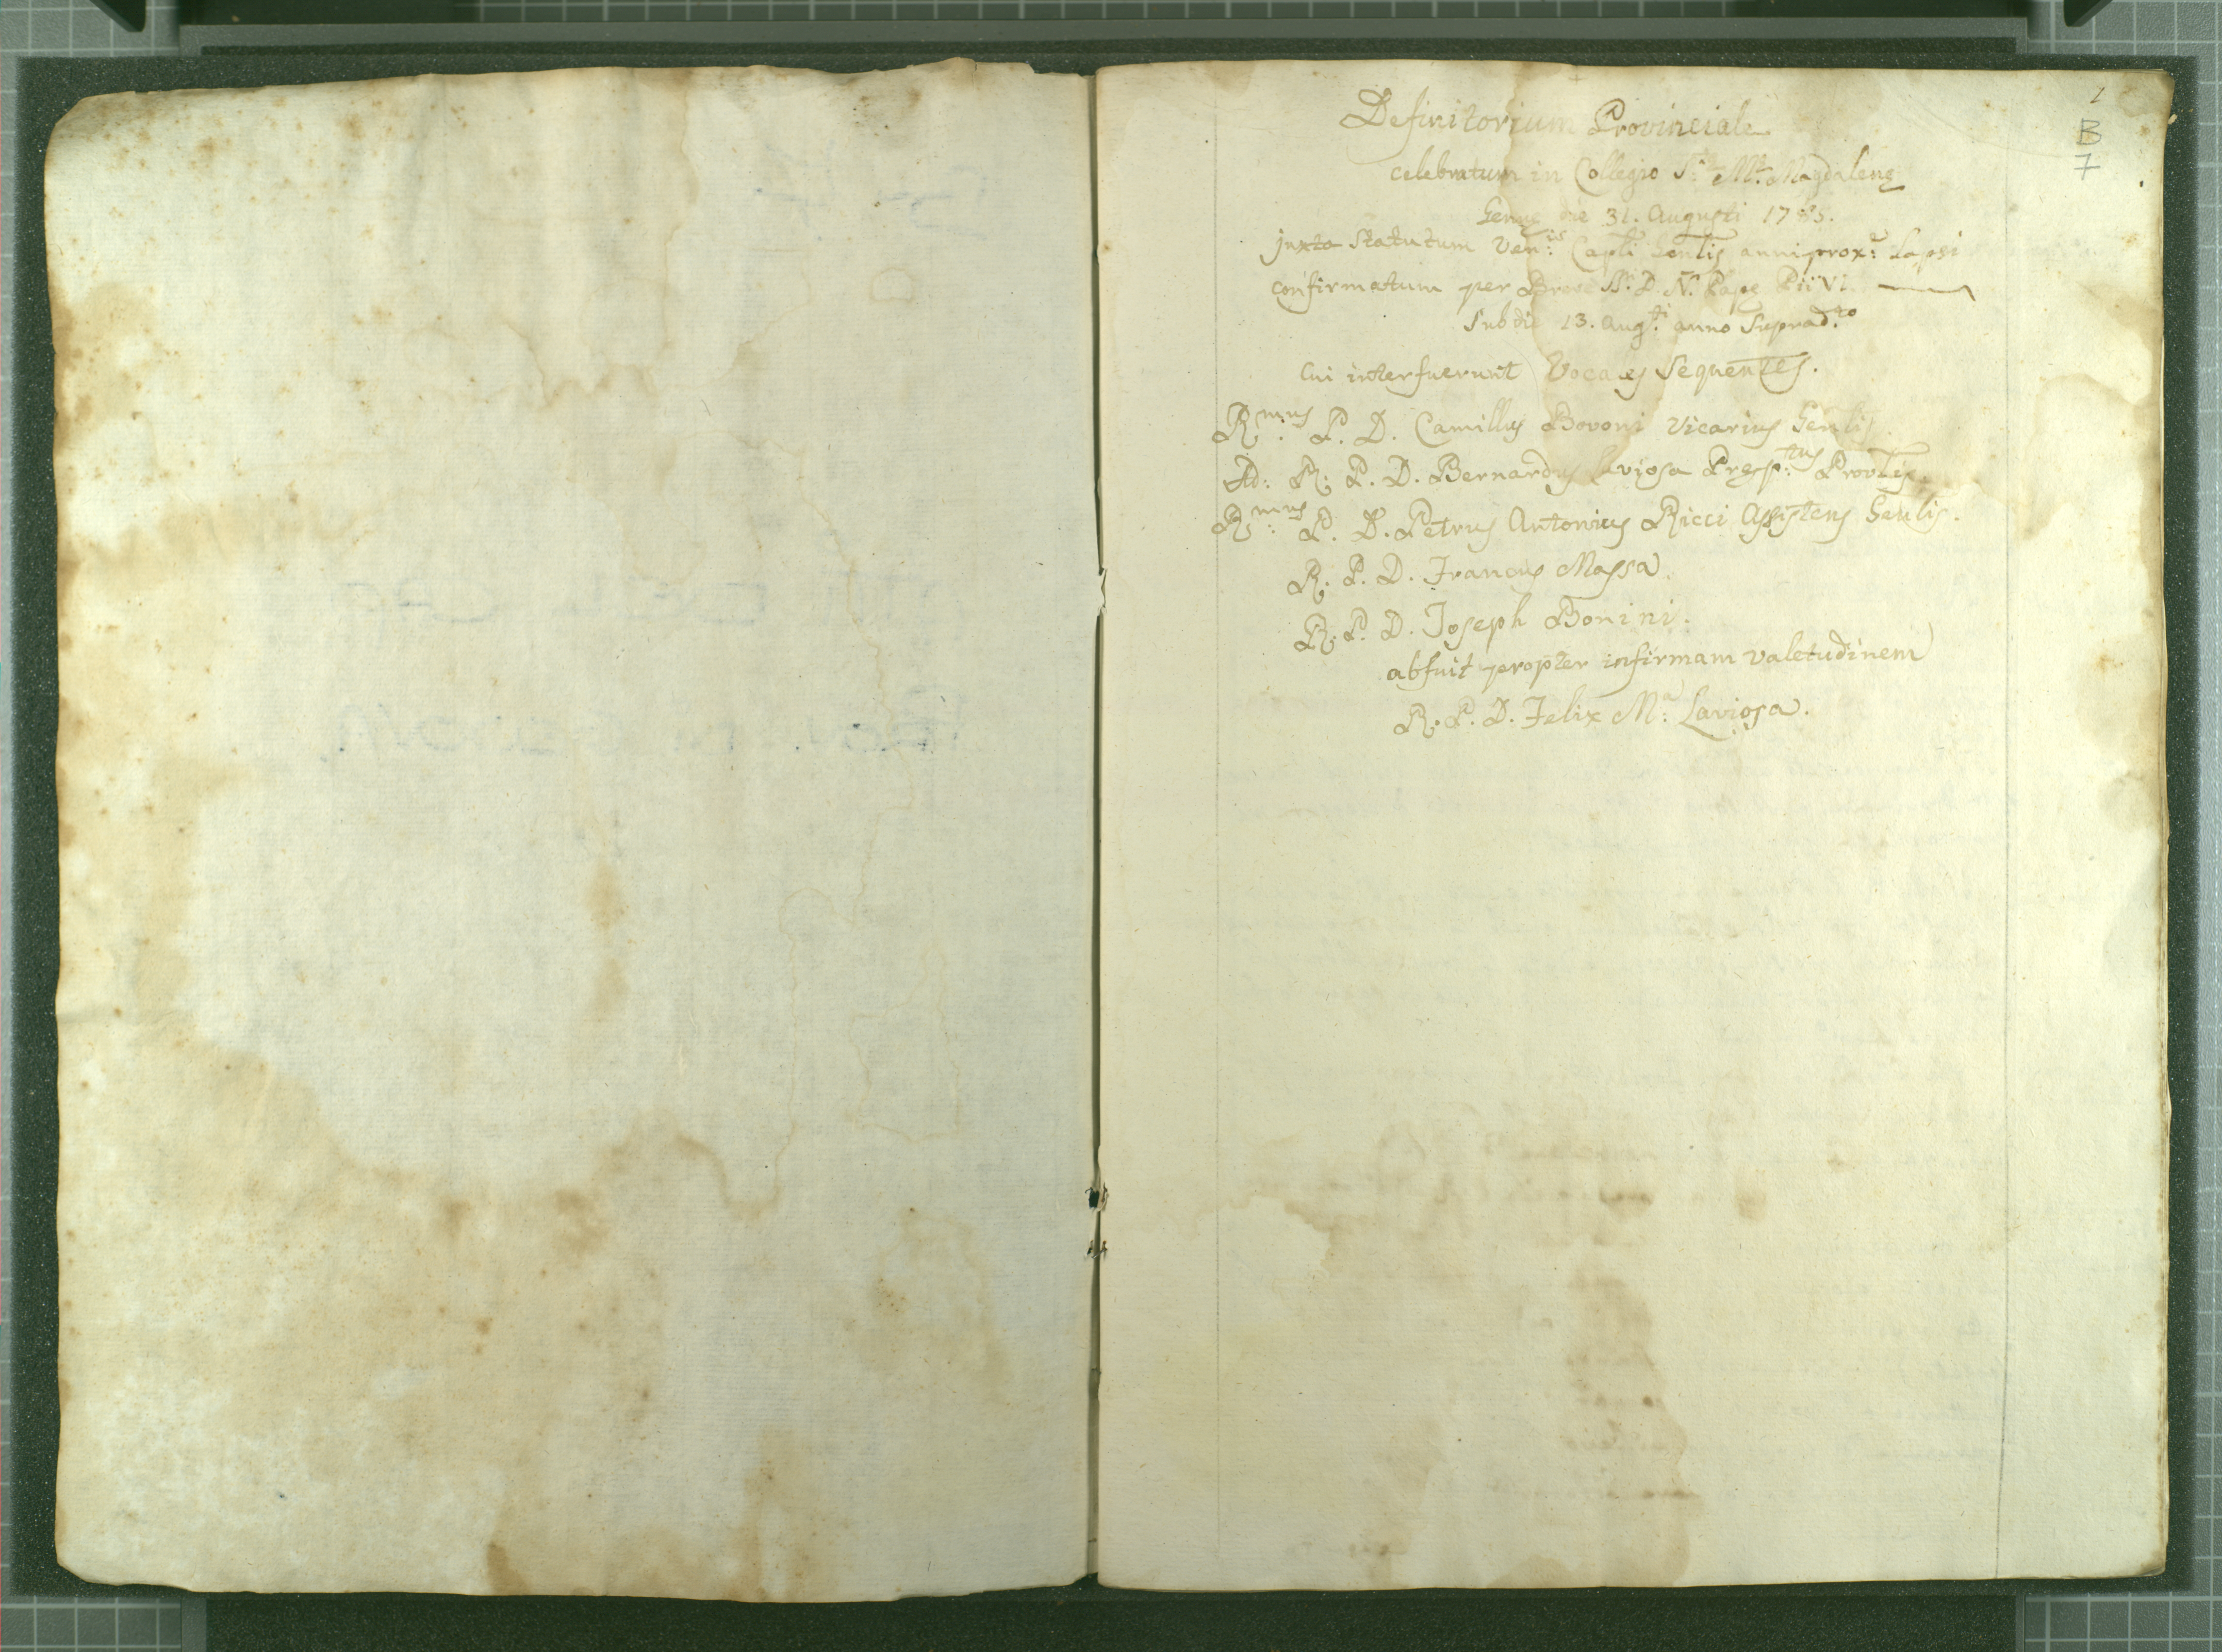 1
B
7
Definitorium Provinciale
celebratum in Collegio S.æ M.æ Magdalenę
Genuę die 31. Augusti 1785.
juxta Statutum Ven:is Capli Gentis anni prox:e Lapsi
confirmatum per Breve SS. D. N. Papę Pii VI.
Sub die 13. Aug:ti anno Suprad.to
Cui interfuerunt Vocales Sequentes.
R:mus P. D. Camillus Bovoni Vicarius Genlis
Ad: R. P. D. Bernardus Laviosa Presp:tus Provlis.
R:mus P. D. Petrus Antonius Ricci Assistens Genlis.
R. P. D. Francus Massa
R. P. D. Joseph Bonini.
abfuit propter infirmam valetudinem
R. P. D. Felix M:a Laviosa.